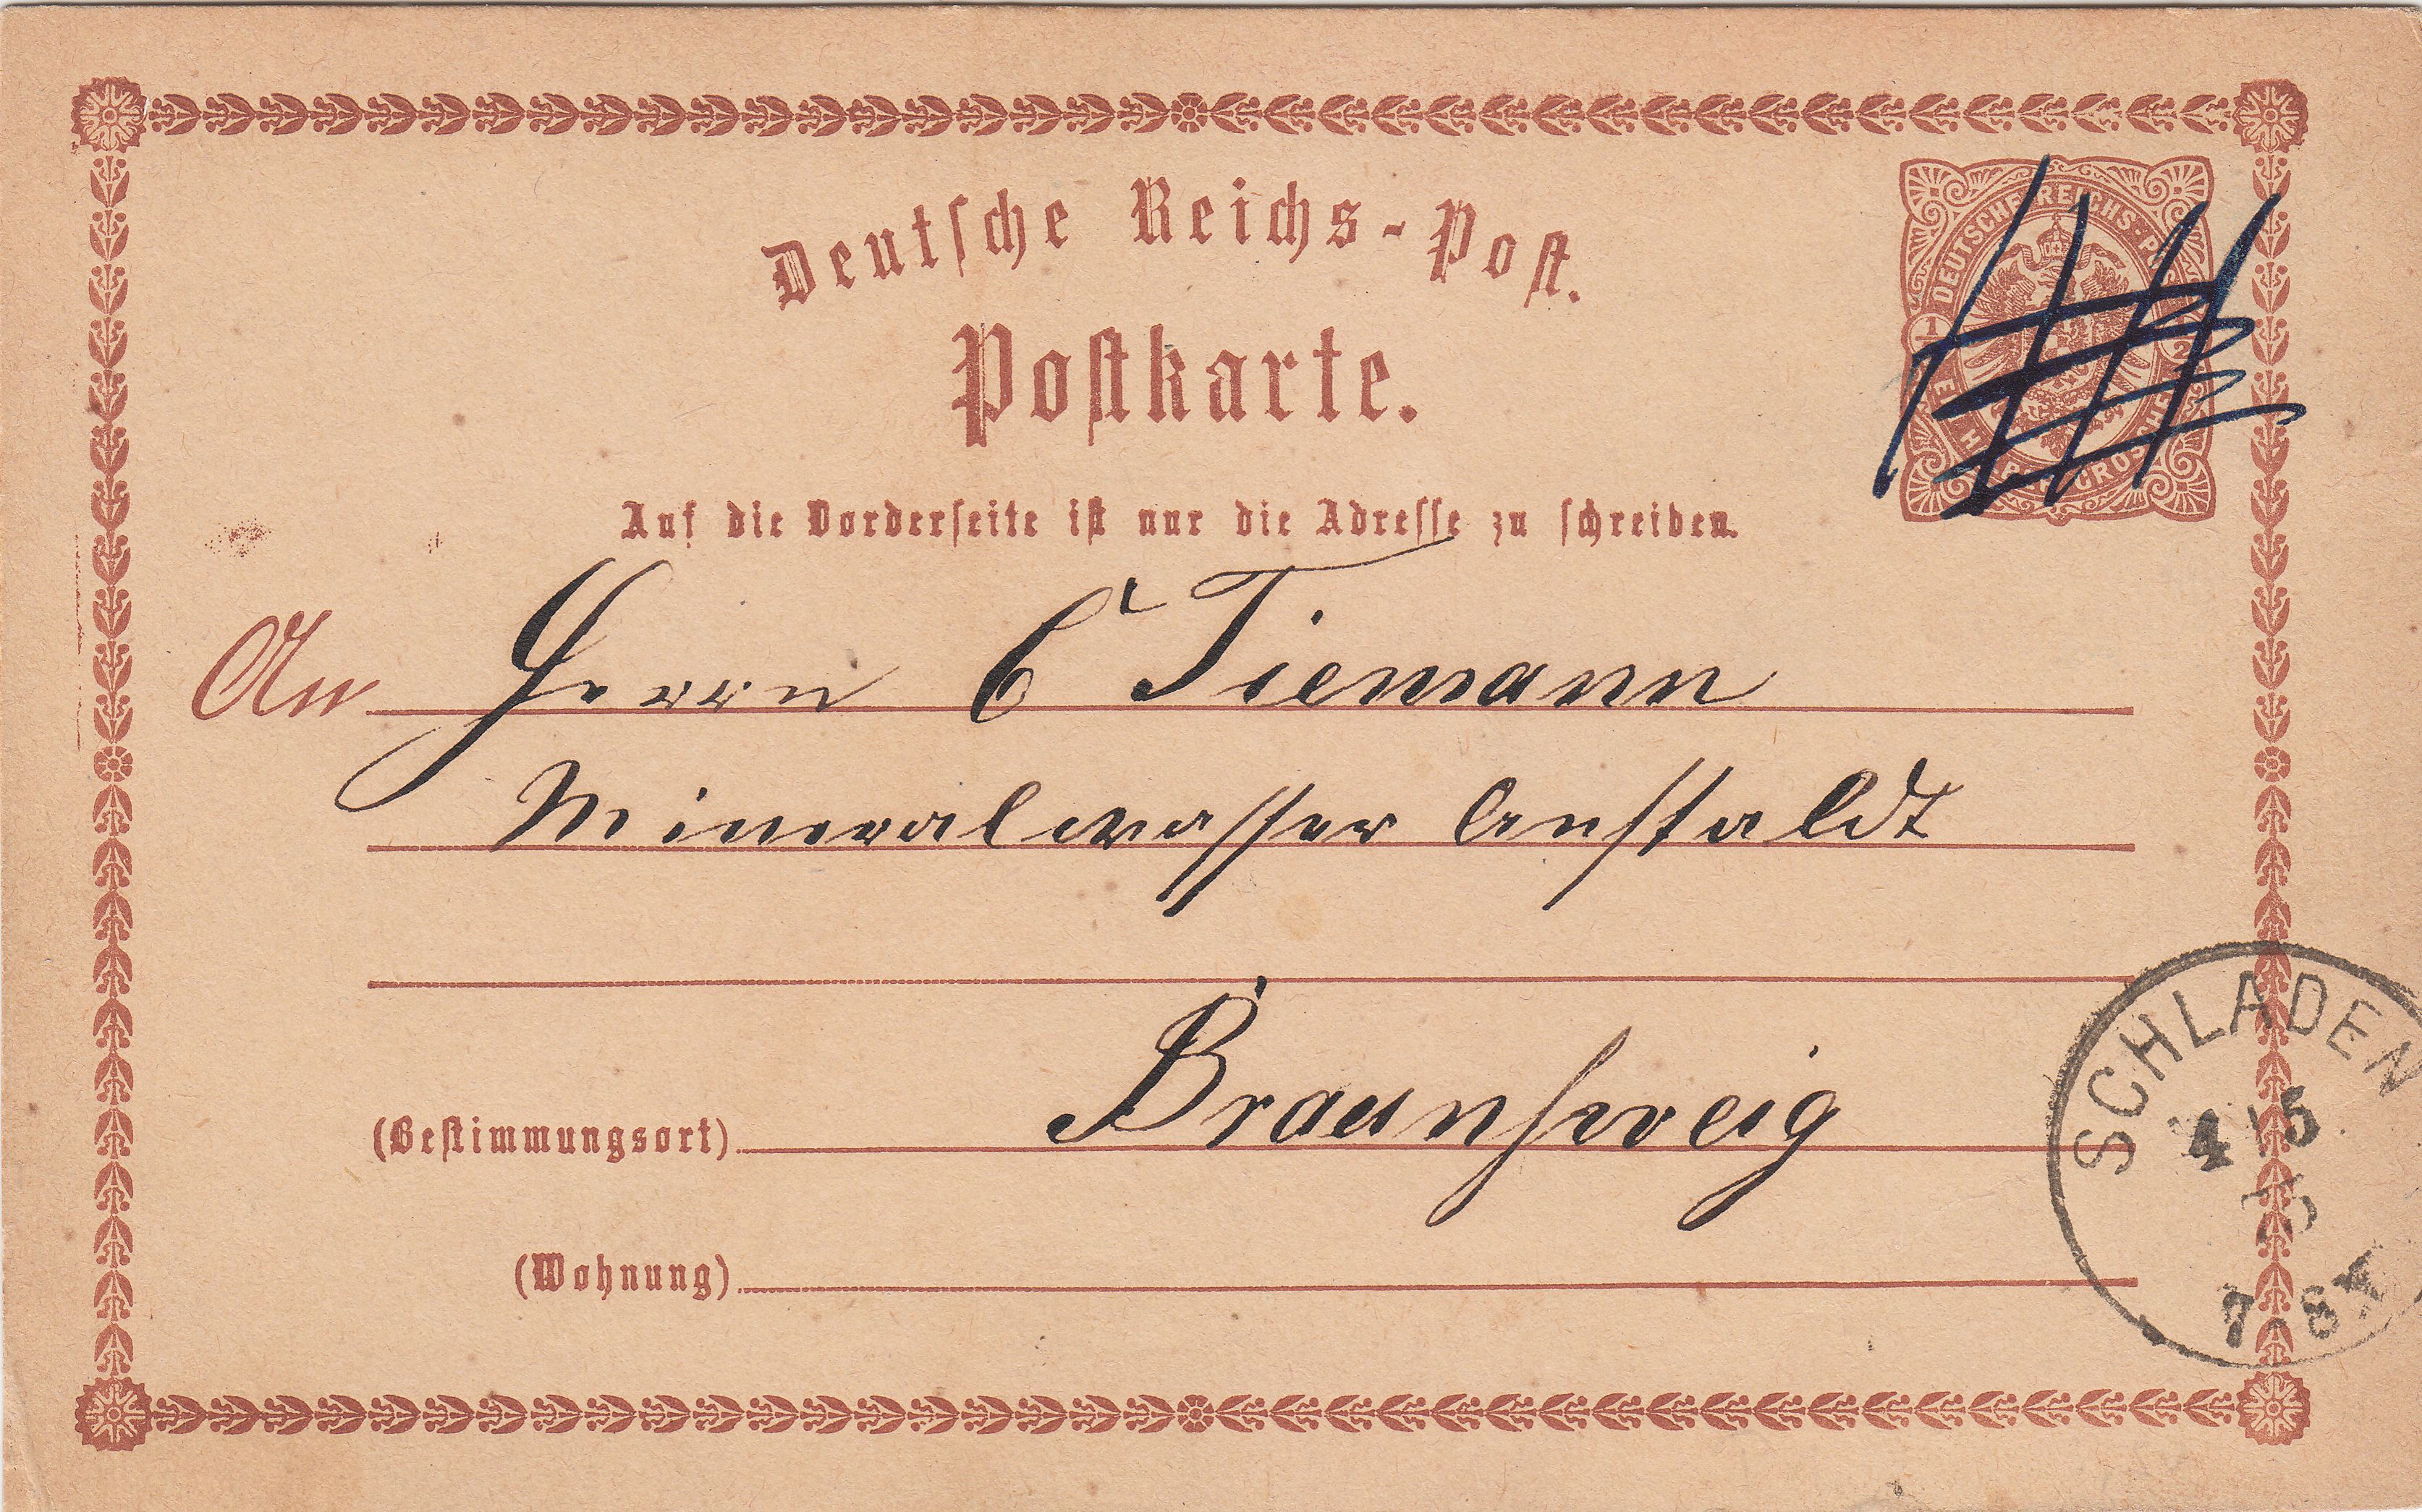 Deutsche Reichs-Post.
Postkarte.
DEUTSCHE REICHS-PO
1/2
GROSCHE
Auf die Vorderseite ist nur die Adresse zu schreiben.
An Herrn C Tiemann
Mineralwasser Anstaldt
Braunsweig
(Bestimmungsort)
(Wohnung)
SCHLADEN
4 5
75
7-8